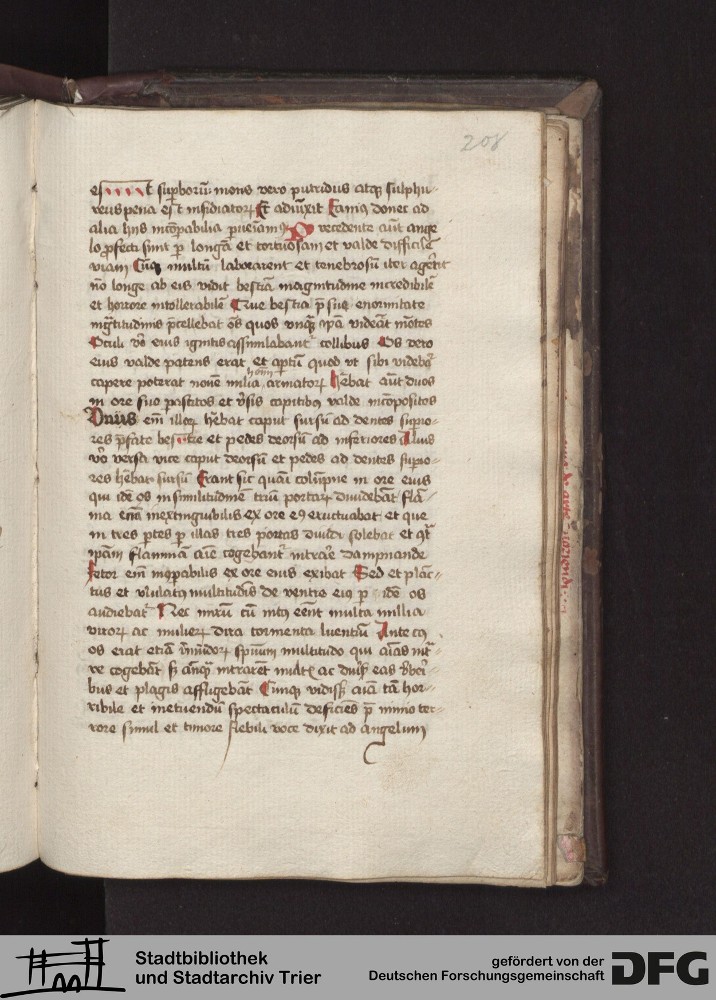 208
est supborū mons vero putridus atq sulphu-
reus pena est insidiatorꝝ Et adiūxit Eamꝰ donec ad
alia hiis incōpabilia pueniamꝰ Precedente aūt ange
lo pfecti sunt p longā et tortuosam et valde difficilē
viam Cūq multū laborarent et tenebrosū iter ageret
nō longe ab eis vidit bestiā magnitudine incredibilē
et horrore intollerabilē Que bestia p sue enormitate
magnitudinis pcellebat oēs quos vnq̄ ipa viderat mōtes
Oculi vō eius ignitis assimilabant collibus Os vero
eius valde patens erat et aptū quod vt sibi videbat
capere poterat novē milia hominū armatorꝝ Hēbat aūt duos
in ore suo parasitos et vsis capitibꝰ valde incōpositos
Vnus em̄ illoꝝ hēbat caput sursū ad dentes supio-
res pfate bestie et pedes deorsū ad inferiores Alius
vō versa vice caput deorsū et pedes ad dentes supio-
res hēbat sursū Erant sic quasi colūpne in ore eius
qui idē os in similitudinē triū portarꝝ dividebāt Flā-
ma eciā inextinguibilis ex ore eꝰ eructuabat et que
in tres ptes p illas tres portas dividi solebat et contra
ipam flammā aīe cogebantʳ intrare dampnande
Fetor em̄ incōpabilis ex ore eius exibat Sed et planc-
tus et vlulatꝰ multitudīs de ventre eiꝰ p idē os
audiebatʳ Nec mirū cū intꝰ eēnt multa millia
virorꝝ ac mulierꝝ dira tormenta luentiū Ante cꝰ
os erat etiā īmūdorꝝ spirituum multitudo qui aīas int-
re cogebāt sꝫ anteq intrarēt multis ac diūsis eas vberi-
bus et plagis affligebāt Cumq vidissꝫ aīa tā hor-
ribile et metuendū spectaculū deficiēs p nimio ter-
rore simul et timore flebili voce dixit ad angelum
Stadtbibliothek
und Stadtarchiv Trier
gefördert von der
Deutschen Forschungsgemeinschaft
DFG